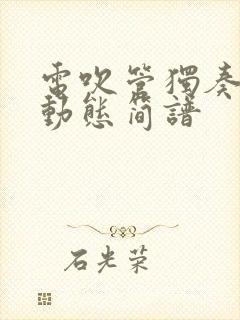 電吹管獨奏
動態簡譜
石光荣